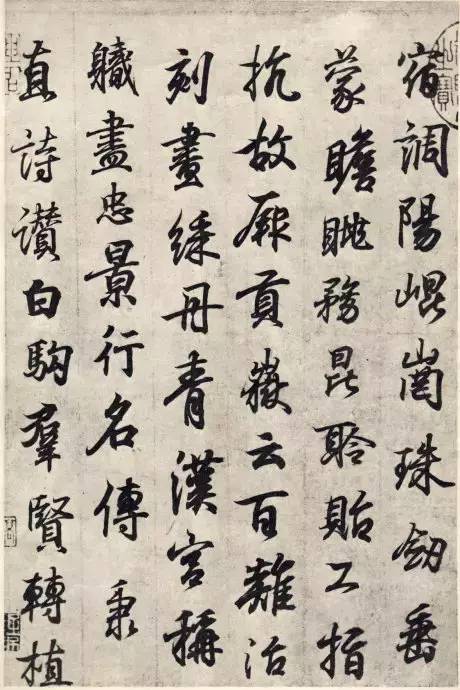 宿調陽崐崗珠劒垂
蒙瞻眺務昆聆貽工指
抗故厥貢嶽云百難治
刻畫綵丹青漢宮稱
軄盡忠景行名傳秉
直詩讚白駒羣賢轉植